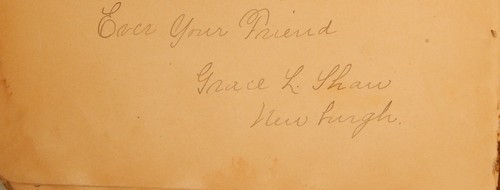 Ever Your Friend
Grace L. Shaw
Newburgh.